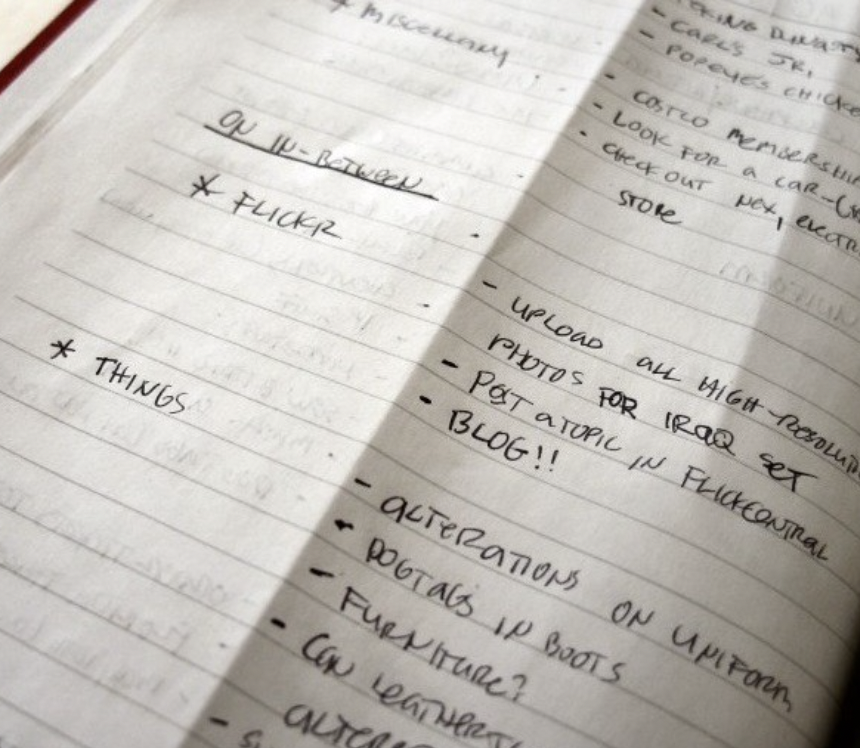 * MISCELLANY
DYNASTY
- CARL'S JR,
- POPEYE'S CHICKE
- COSTCO MEMBERSHIP
- LOOK FOR A CAR-
- CHECK OUT NEX, ELECTR
STORE
ON IN-BETWEEN
* FLICKR
- UPLOAD ALL HIGH-RESOLUTI
PHOTOS FOR IRAQ SET
- POST A TOPIC IN FLICKRCENTRAL
- BLOG!!
* THINGS
- ALTERATIONS ON UNIFORM
- DOGTAGS IN BOOTS
- FURNITURE?
- CAN LEATHER
- ALTER